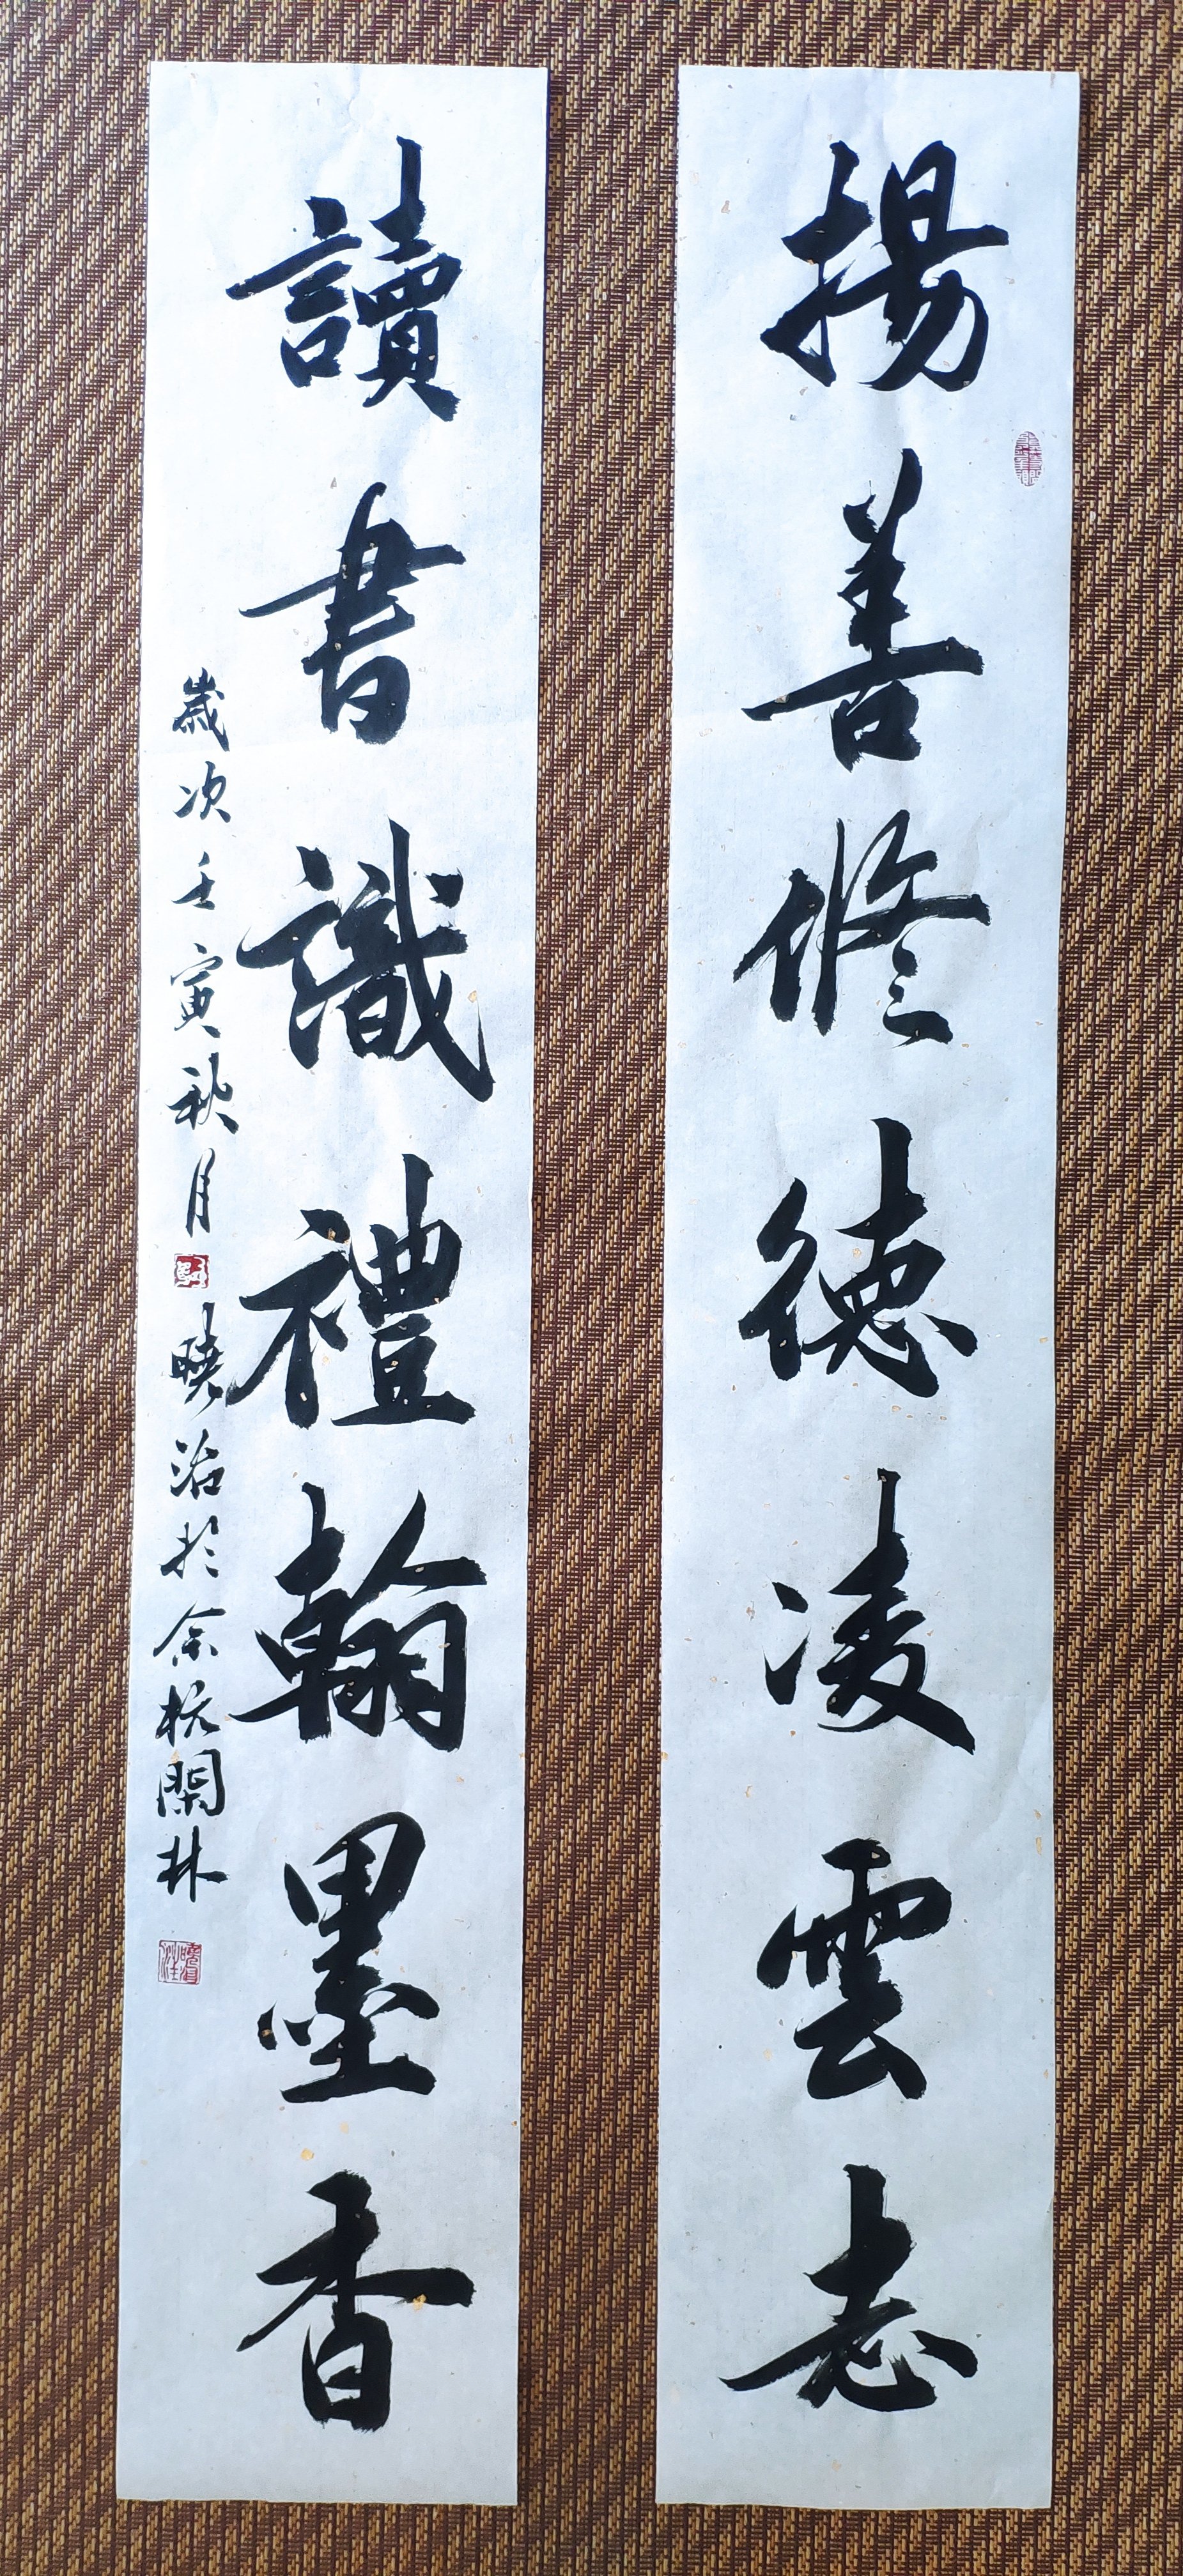 揚善修德凌雲志
讀書識禮翰墨香
歲次壬寅秋月曉治於余杭閑林